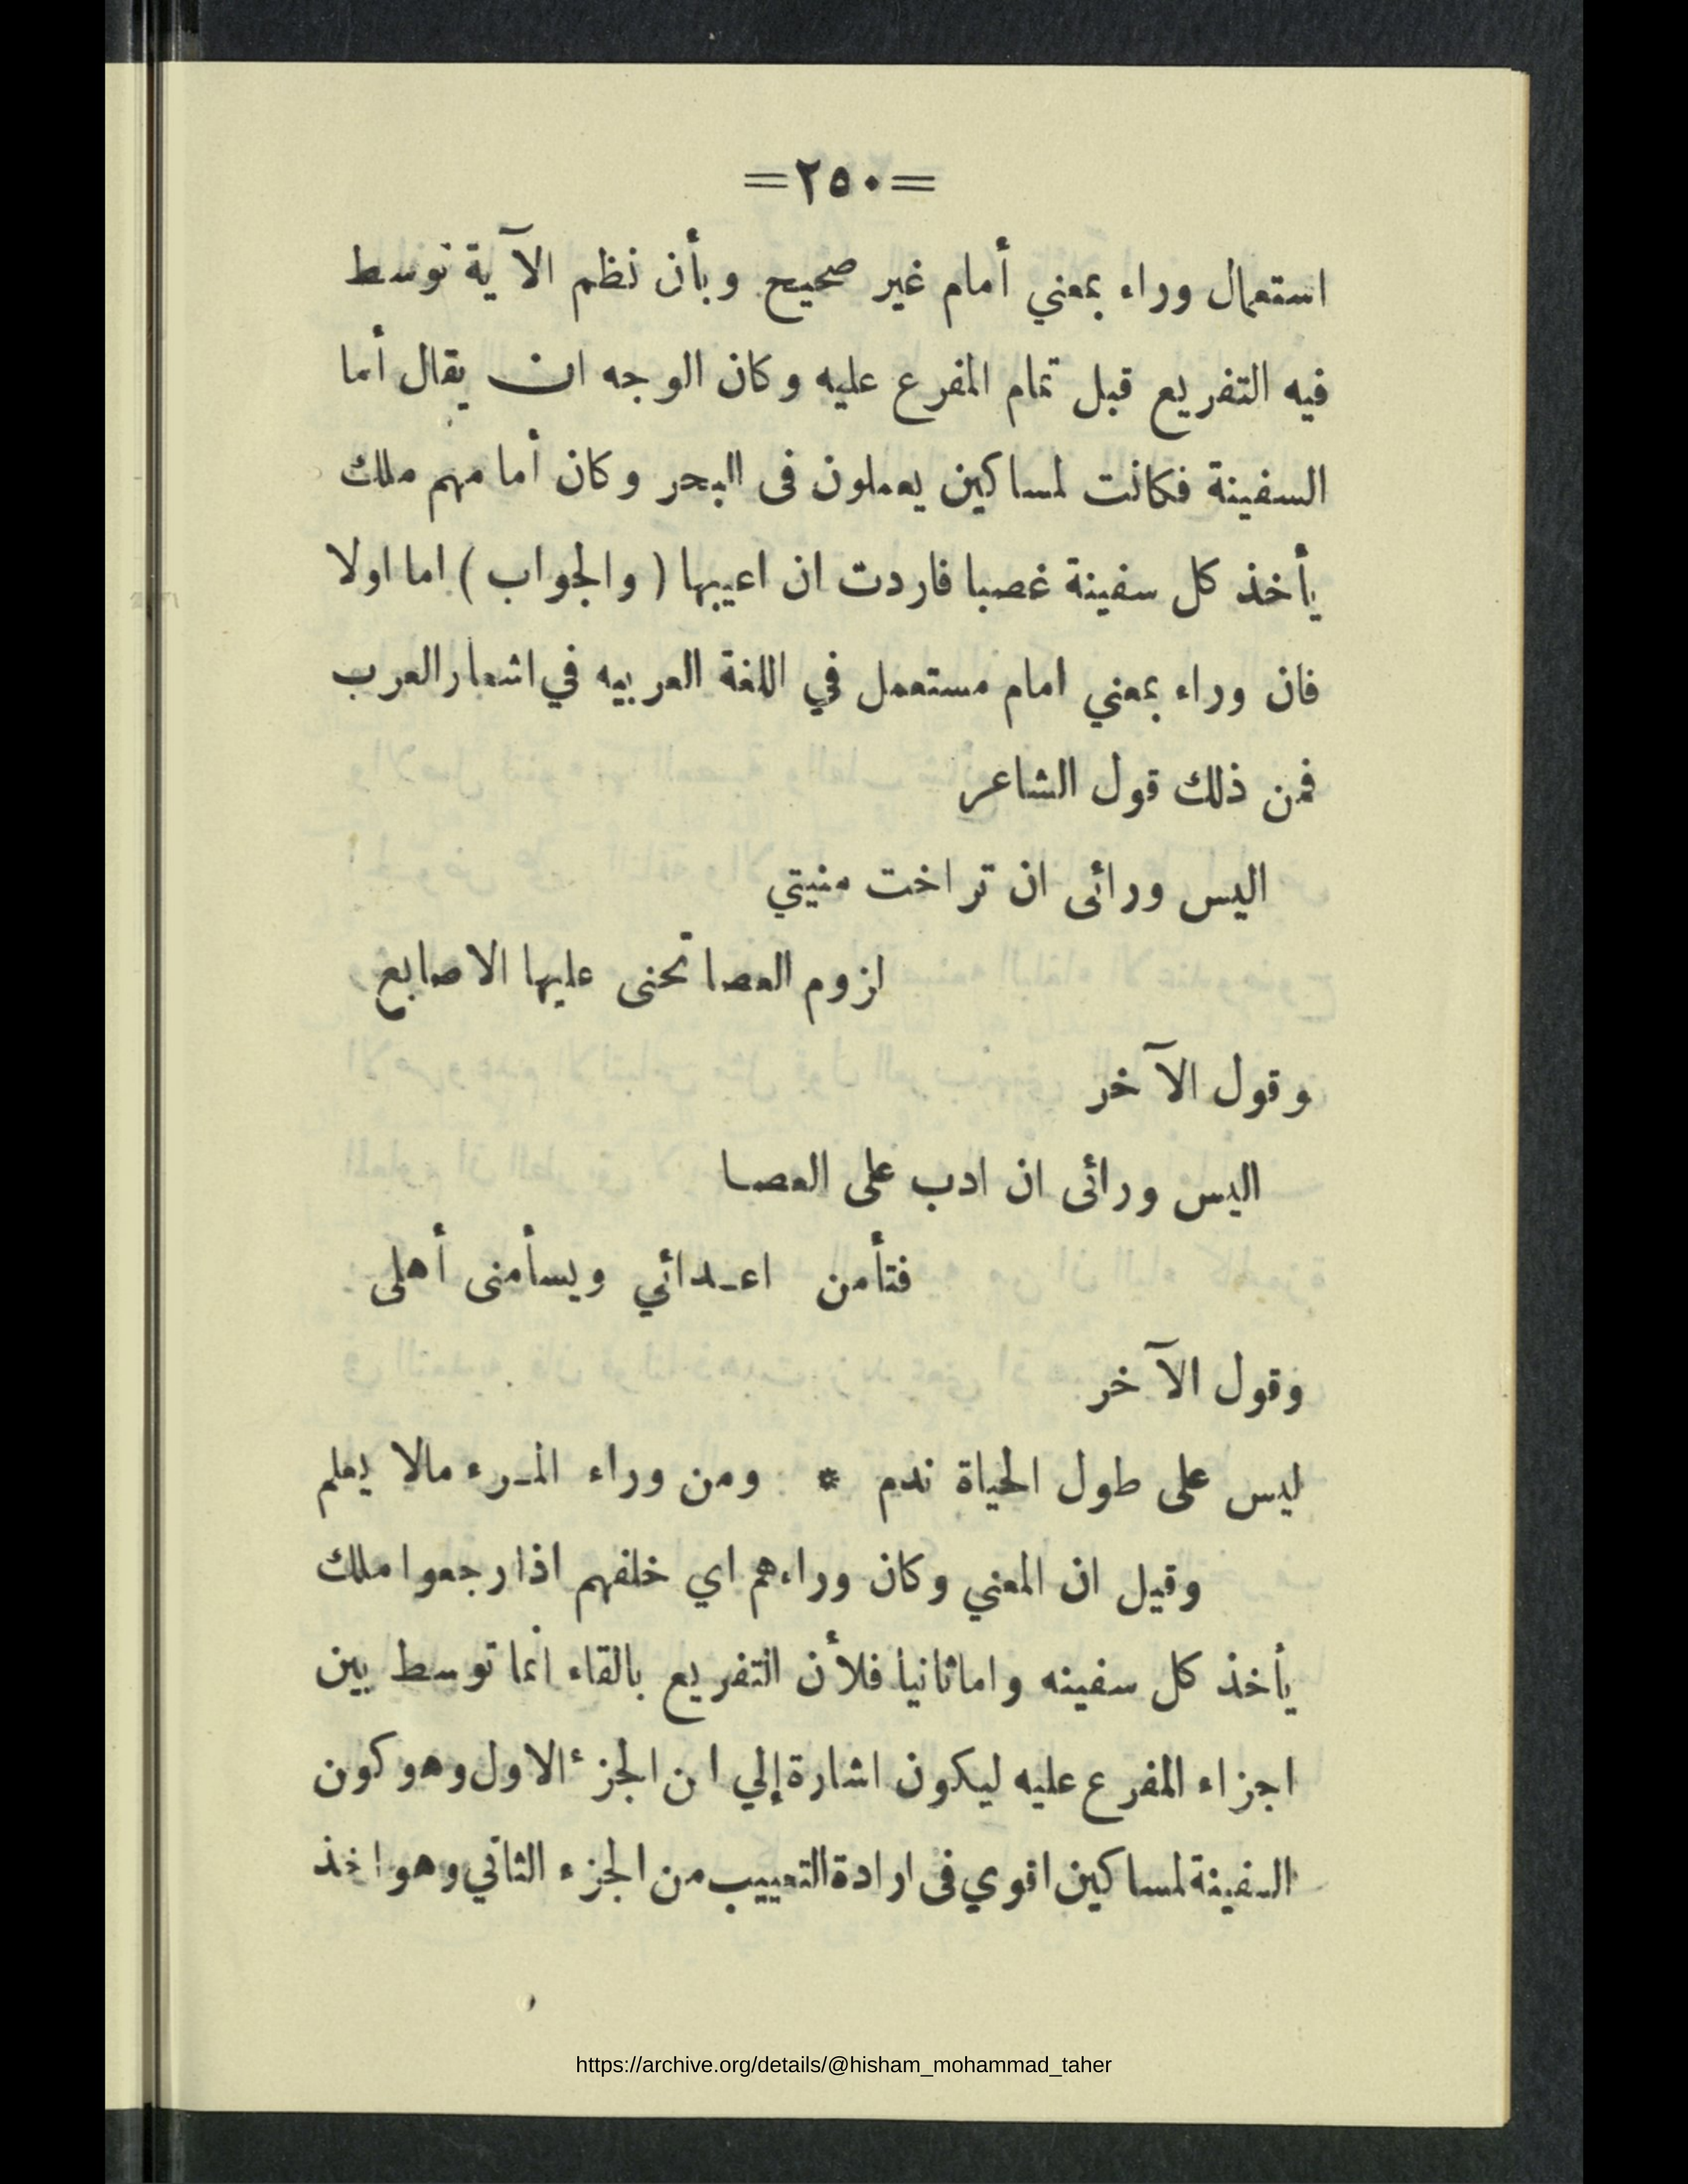 =٢٥٠=
استعمال وراء بمعني أمام غير صحيح وبأن نظم الآية توسط
فيه التفريع قبل تمام المفرع عليه وكان الوجه ان يقال أما
السفينة فكانت لمساكين يعملون فى البحر وكان أمامهم ملك
يأخذ كل سفينة غصبا فاردت ان اعيبها ( والجواب ) اما اولا
فان وراء بمعني امام مستعمل في اللغة العربيه في اشعار العرب
فمن ذلك قول الشاعر
اليس ورائى ان تراخت منيتي
ازوم العصا تحنى عليها الاصابع
وقول الآخر
اليس ورائى ان ادب على العصا
فتأمن اعدائي ويسأمنى أهلى
وقول الآخر
ليس على طول الحياة ندم * ومن وراء المرء مالا يعلم
وقيل ان المعني وكان وراءهم اي خلفهم اذا رجعوا ملك
يأخذ كل سفينه واما ثانيا فلأن التفريع بالقاء انما توسط بين
اجزاء المفرع عليه ليكون اشارة إلي ان الجزء الاول وهو كون
السفينة لمساكين اقوي فى ارادة التعييب من الجزء الثاني وهو اخذ
https://archive.org/details/@hisham_mohammad_taher